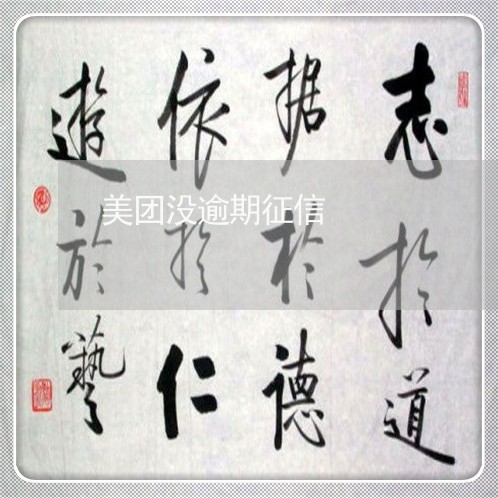 志於道
据於德
依於仁
遊於藝
美团没逾期征信